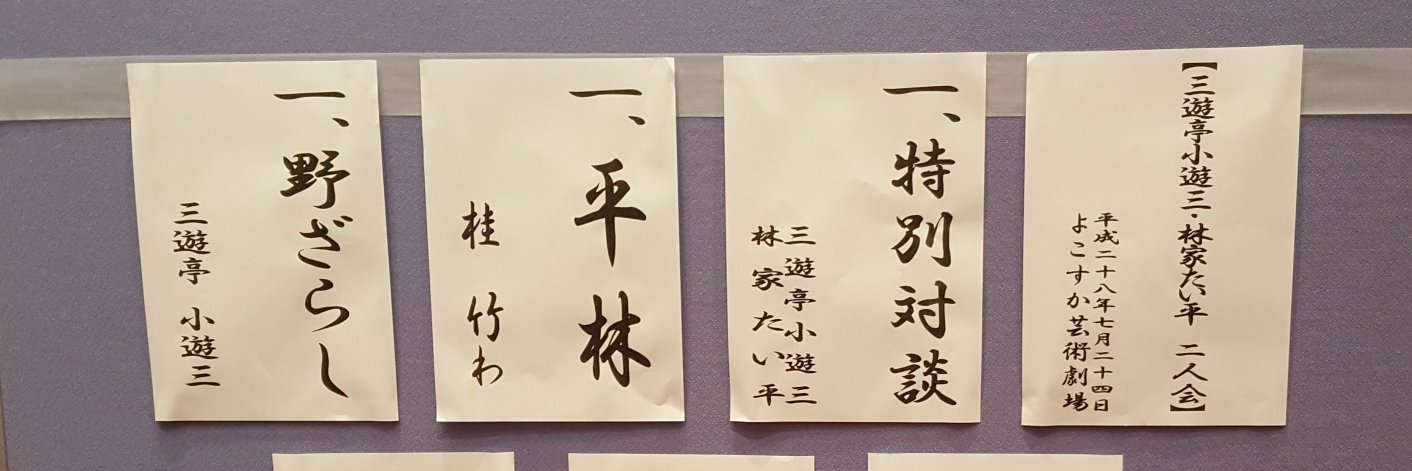 【三遊亭小遊三・林家たい平 二人会】
平成二十八年七月二十四日
よこすか芸術劇場
一、特別対談
三遊亭小遊三
林家たい平
一、平林
桂 竹わ
一、野ざらし
三遊亭 小遊三